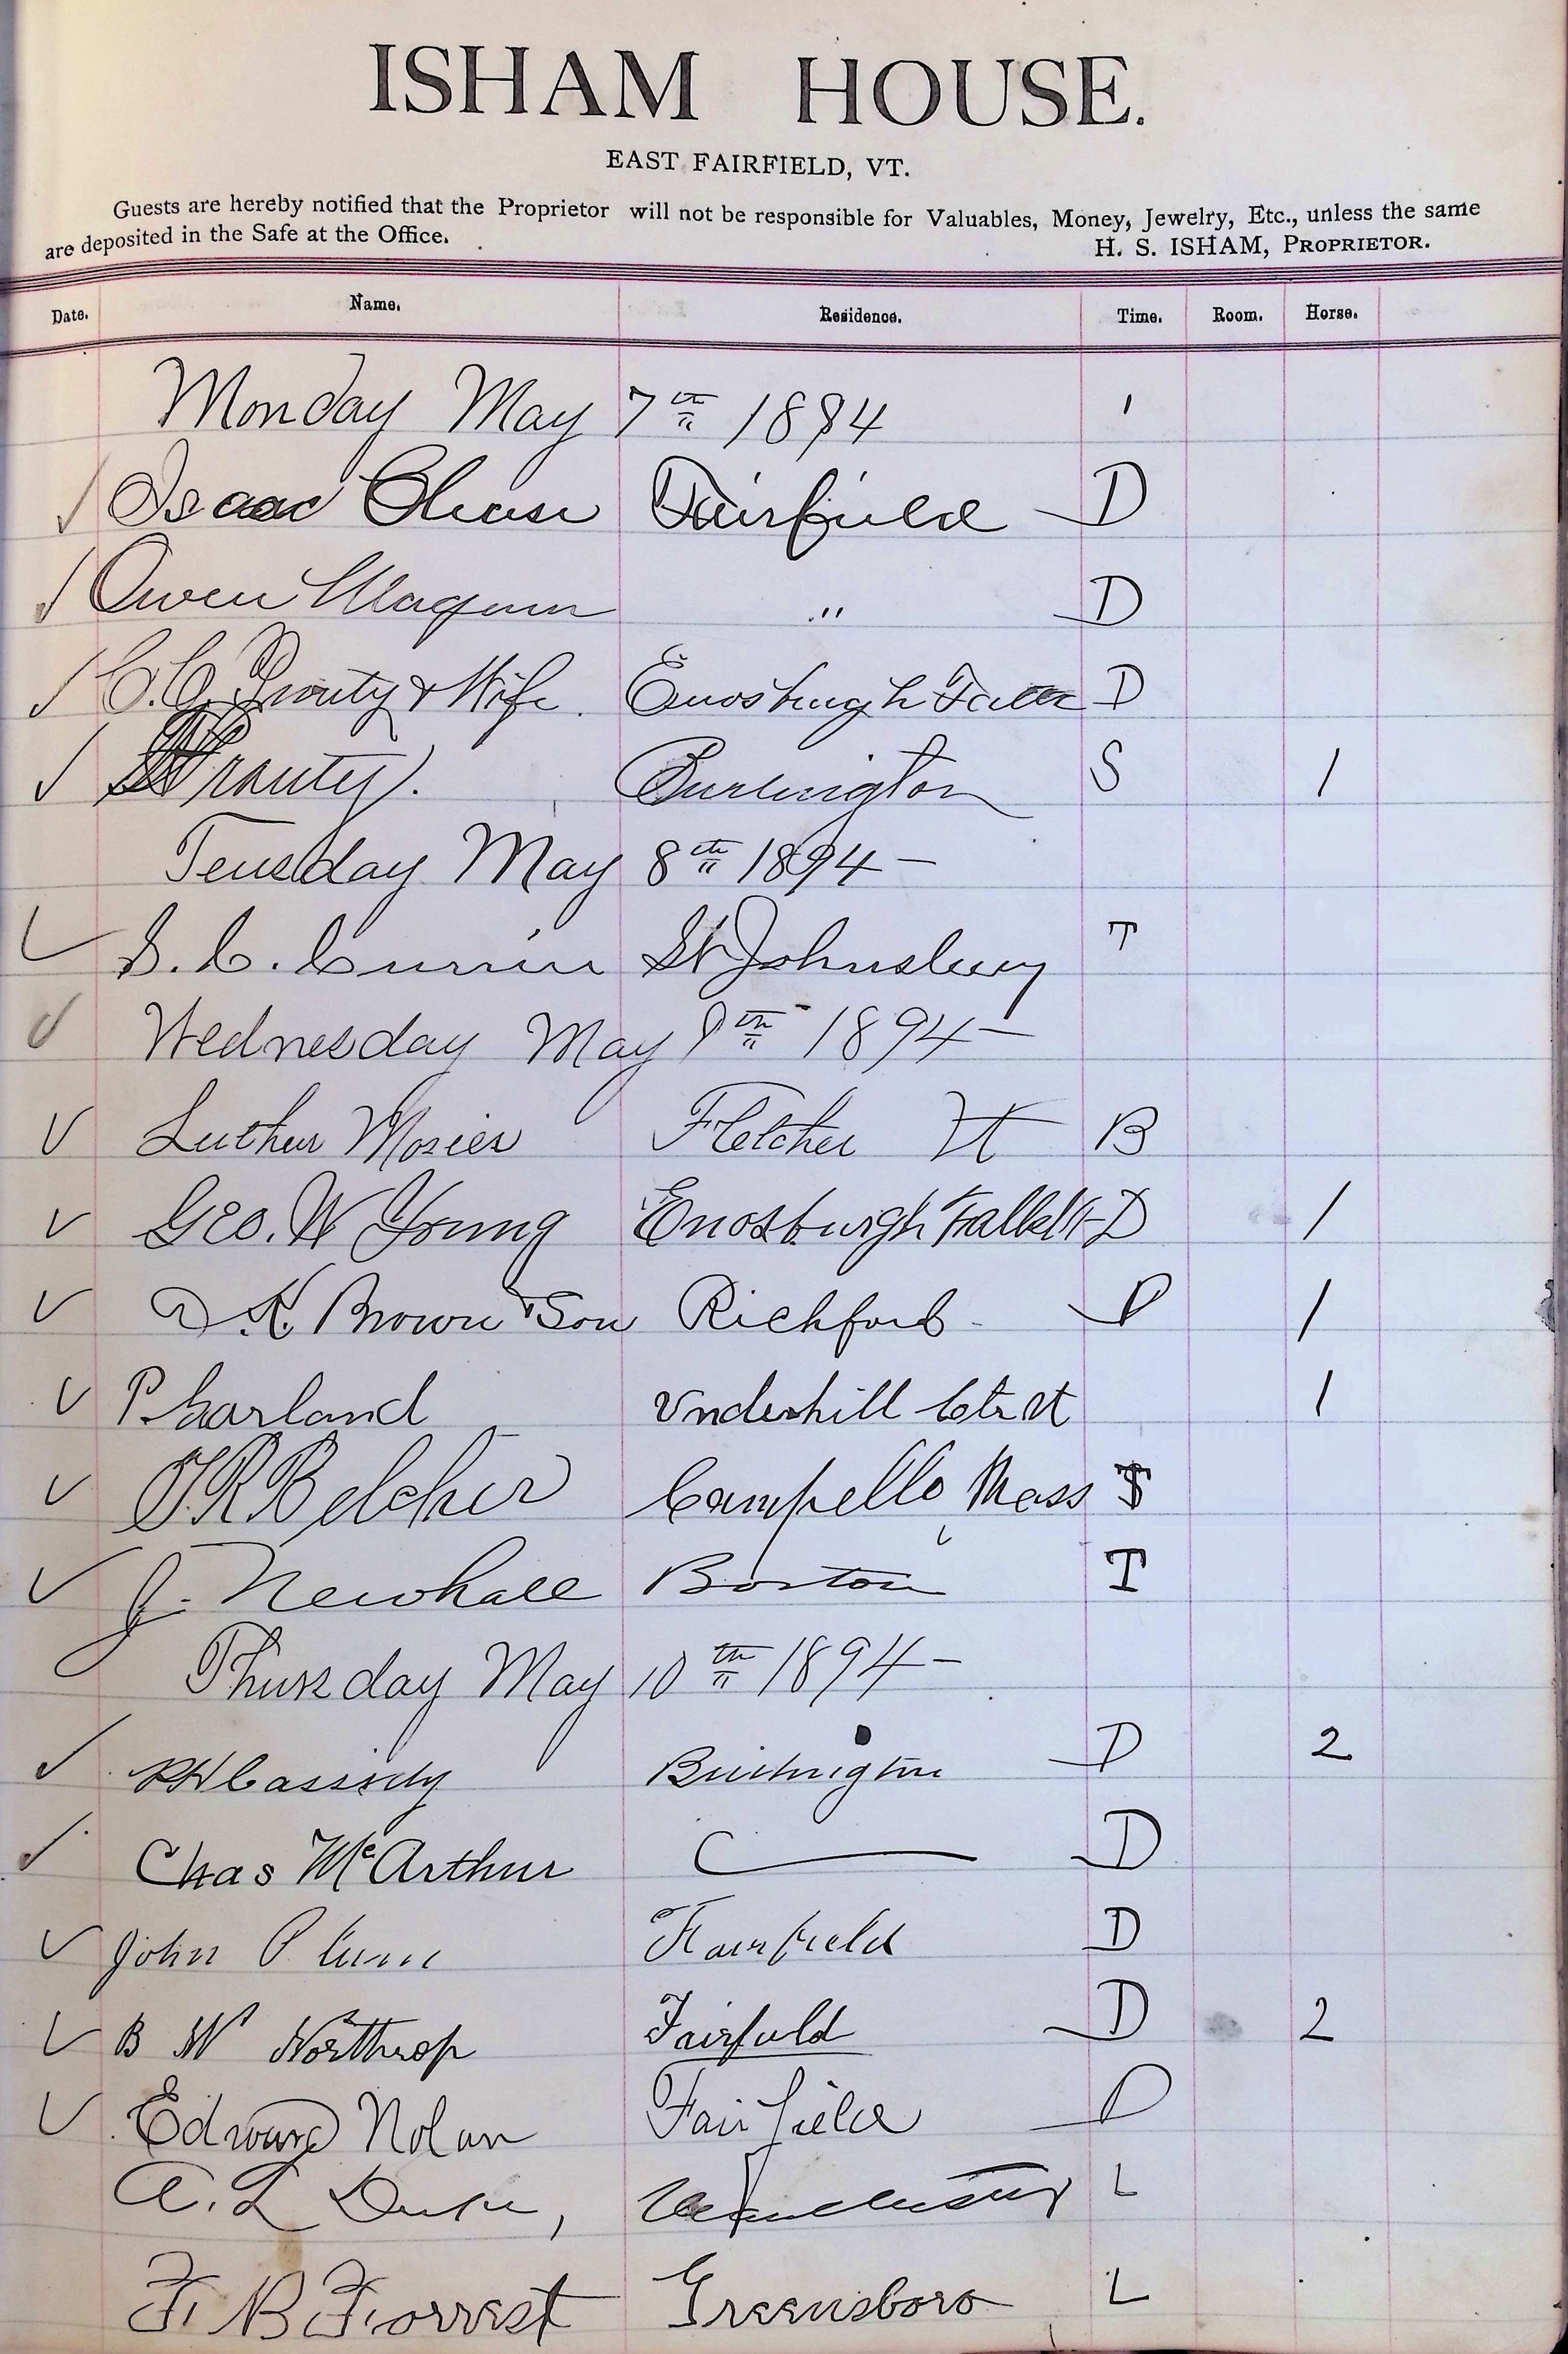 ISHAM HOUSE.
EAST FAIRFIELD, VT.
Guests are hereby notified that the Proprietor will not be responsible for Valuables, Money, Jewelry, Etc., unless the same
are deposited in the Safe at the Office.
H. S. ISHAM, PROPRIETOR.
Date. Name. Residence. Time. Room. Horse.
Monday May 7th 1894
Isaac Fairfield D
Owen Maginn " D
C.C. Prouty & Wife. Enosburgh Falls D
Prouty. Burlington S 1
Teusday May 8th 1894 —
S. C. Currier St Johnsbury T
Wednesday May 9th 1894 —
Luther Mosier Fletcher Vt B
Geo. W Young Enosburgh Falls Vt D 1
D K. Brown & Son Richford D 1
P. Garland Underhill Ctr Vt 1
Belcher Campello, Mass
J. Newhall Boston T
Thursday May 10th 1894 —
Cassidy Burlington D 2
Chas McArthur D
John Fairfield D
B W Northrop Fairfield D 2
Edward Nolan Fairfield D
A. L L
F. B Forrest Greensboro L